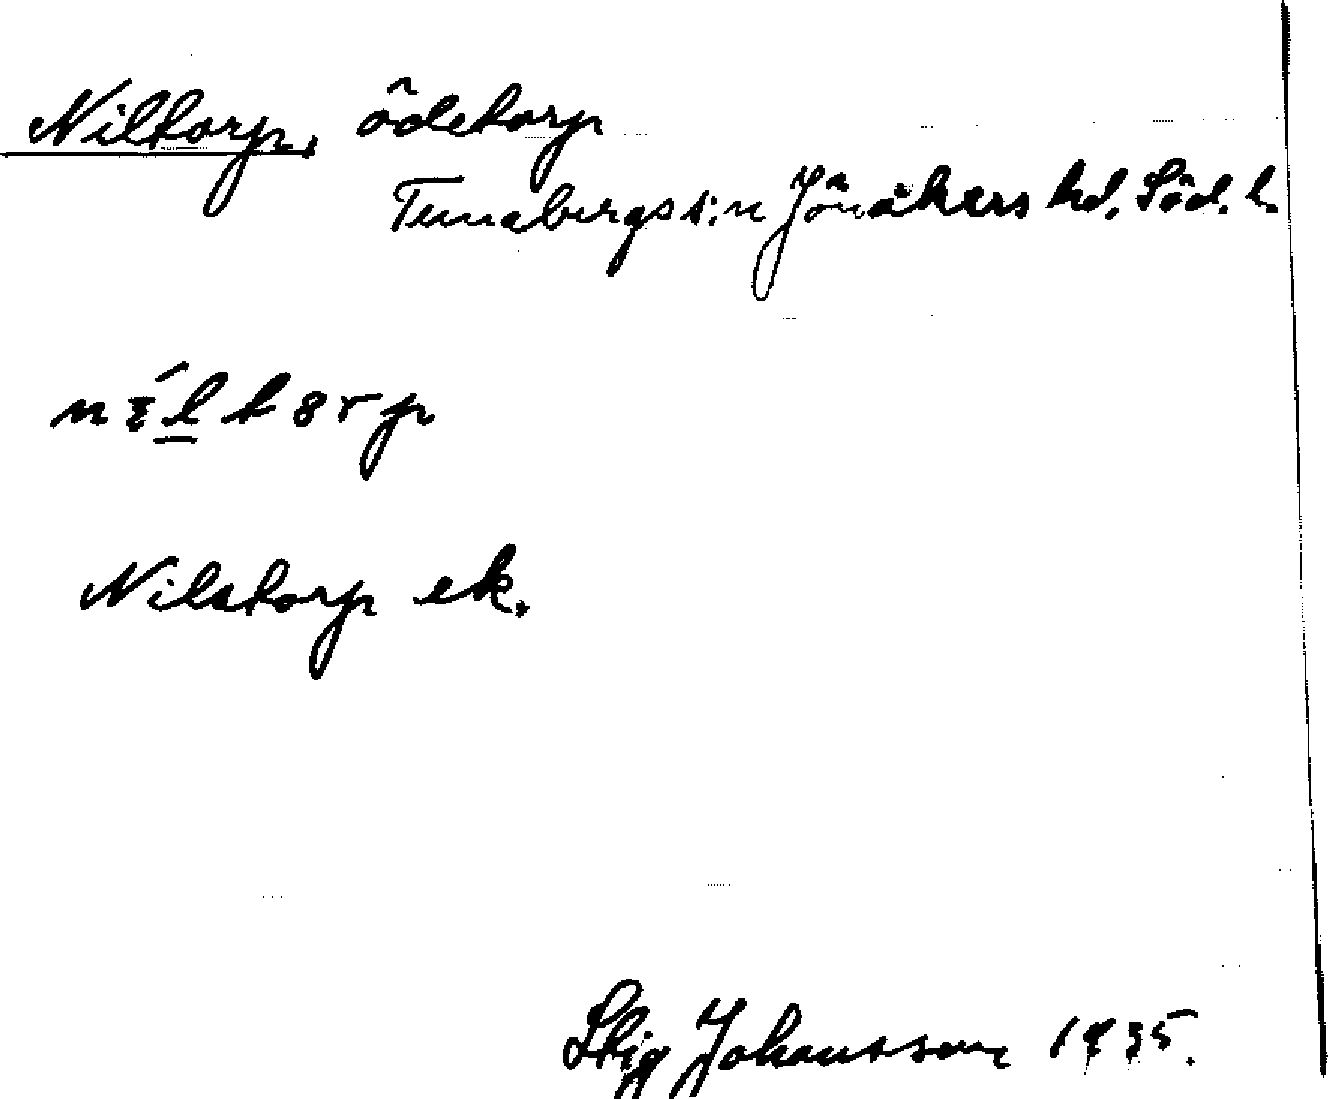 Niltorp, ödetorp
Tunabergs s:n Jönåkers hd, Söd. l.
Nilstorp ek.
Stig Johansson 1935.